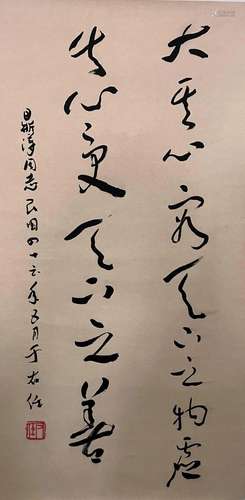 大其心容天下之物虛
其心受天下之善
同志 民国四十年月 于右任